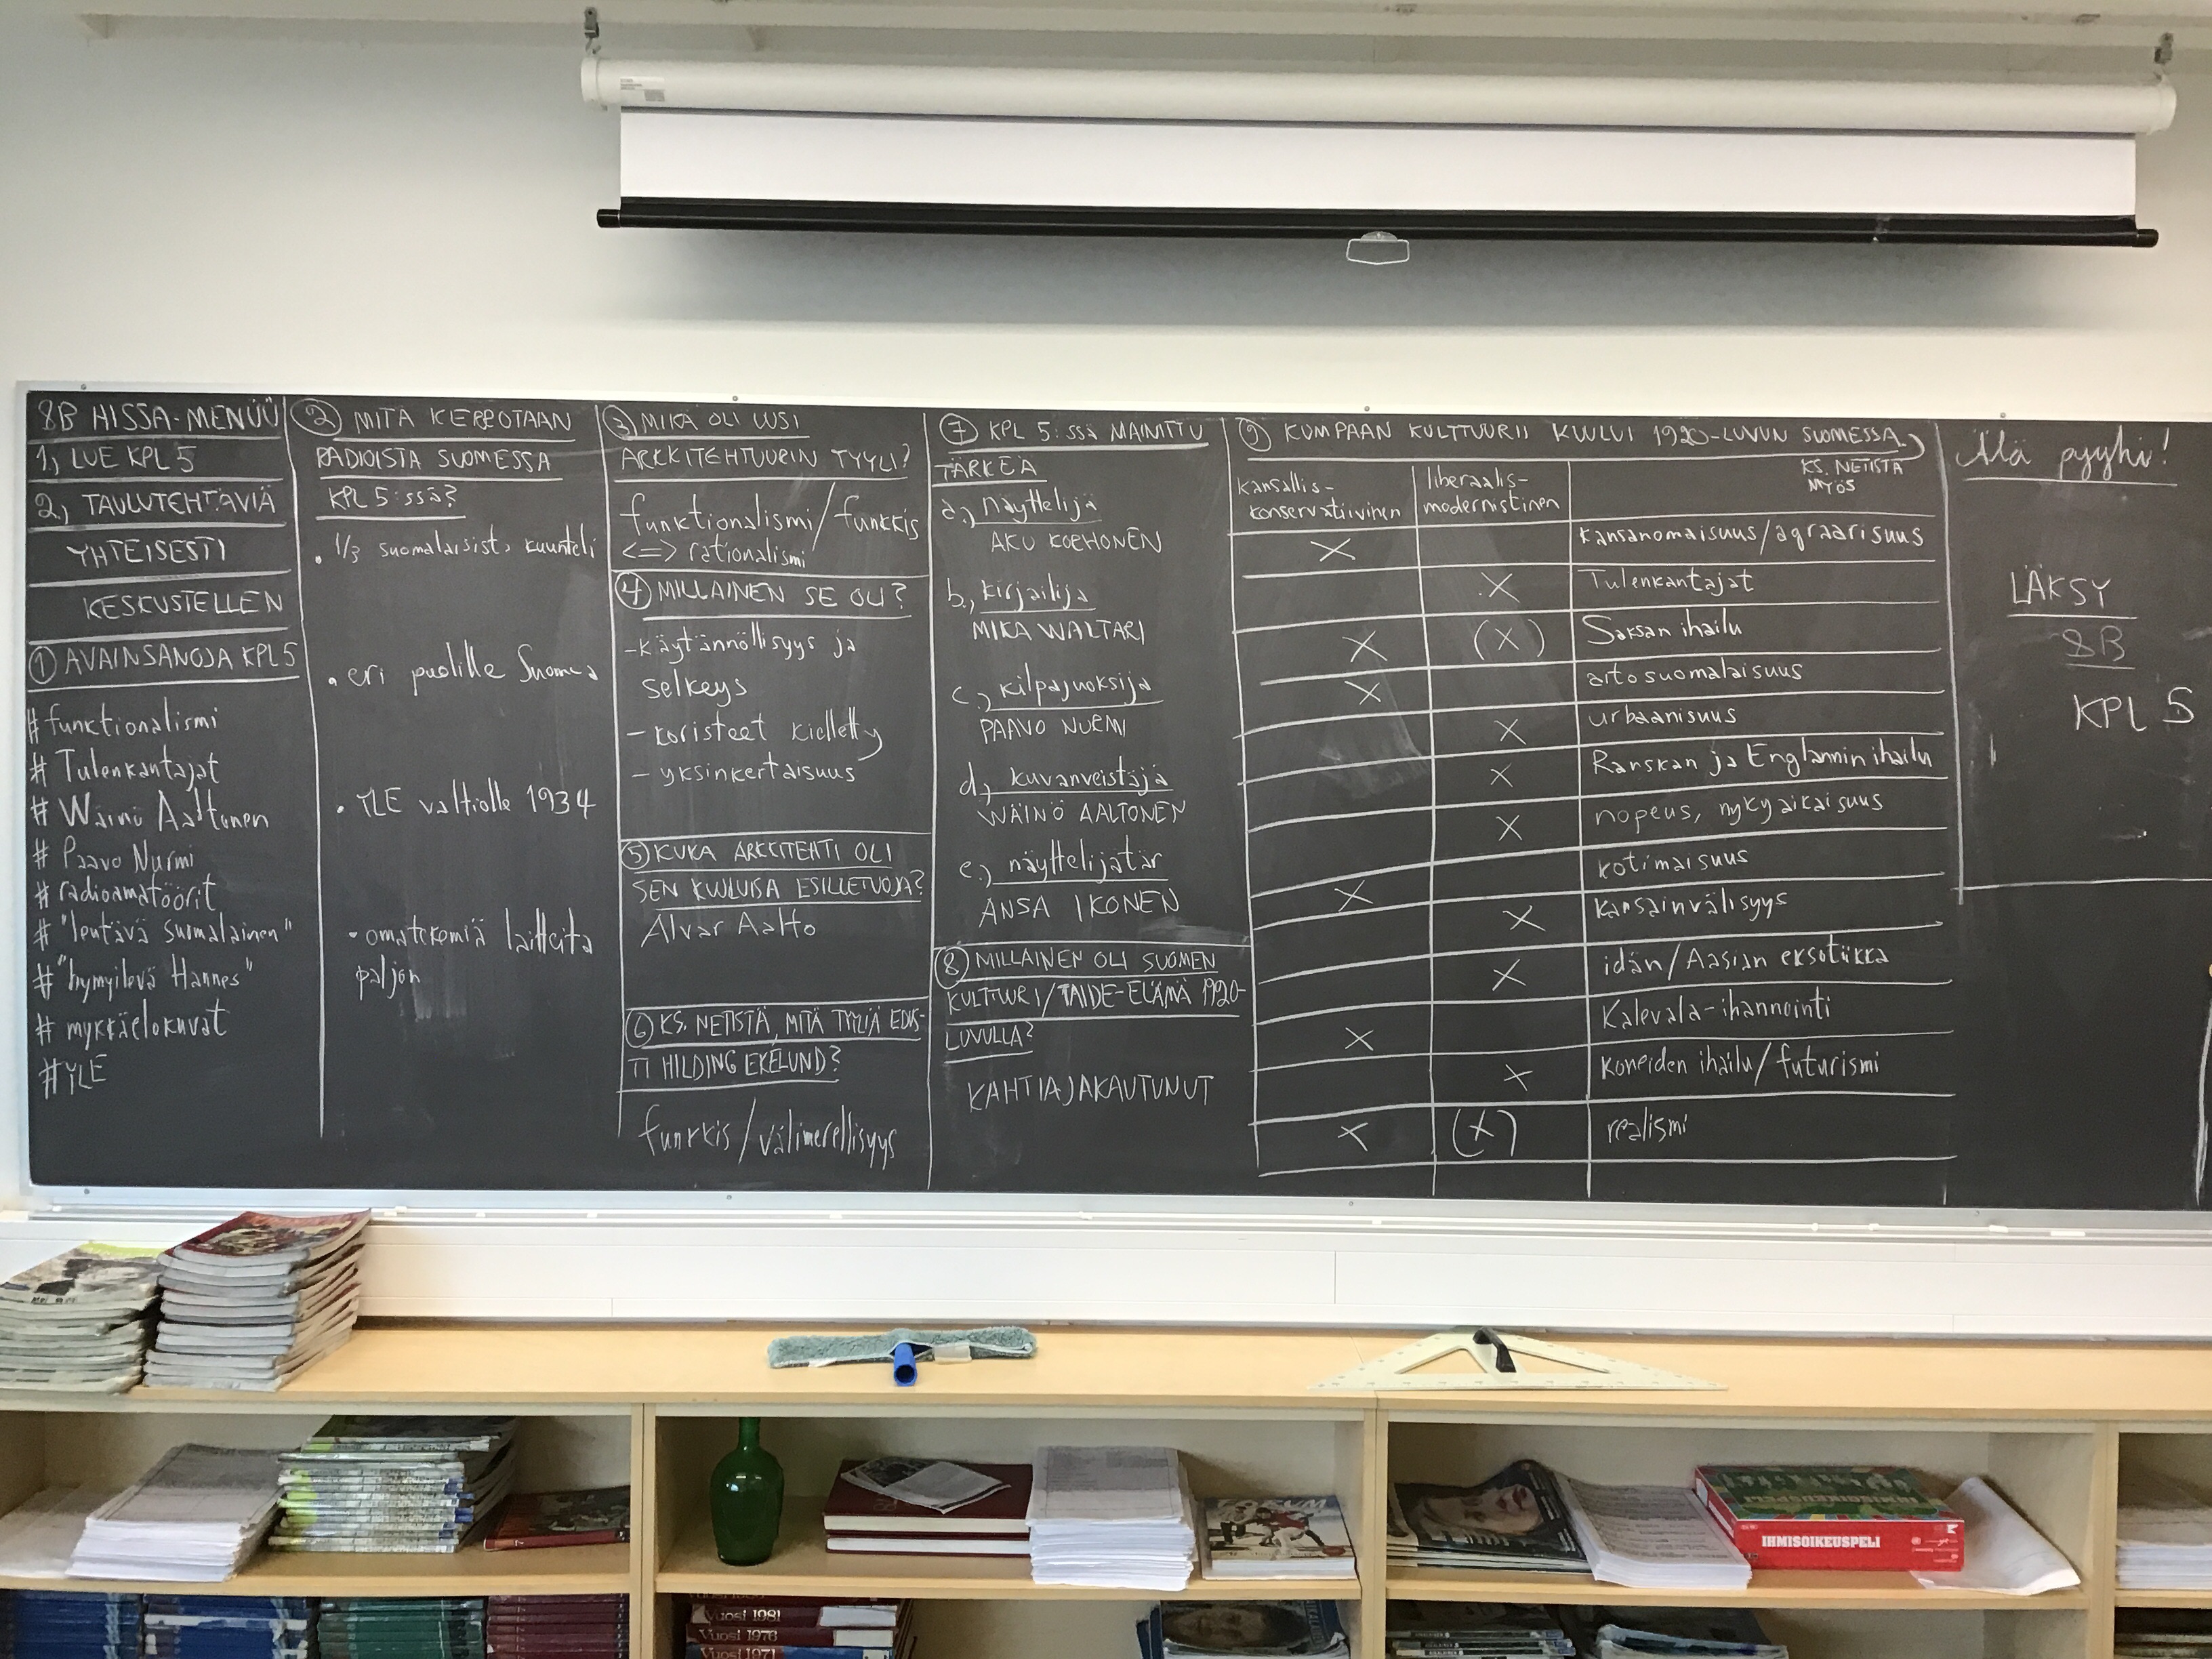 8B HISSA-MENÜÜ
1.) LUE KPL 5
2.) TAULUTEHTÄVIÄ
YHTEISESTI
KESKUSTELLEN
① AVAINSANOJA KPL 5
# funktionalismi
# Tulenkantajat
# Wäinö Aaltonen
# Paavo Nurmi
# radioamatöörit
# "lentävä suomalainen"
# "hymyilevä Hannes"
# mykkäelokuvat
# YLE
② MITÄ KERROTAAN
RADIOISTA SUOMESSA
KPL 5:ssä?
• 1/3 suomalaisista kuunteli
• eri puolille Suomea
• YLE valtiolle 1934
• omatekemiä laitteita
paljon
③ MIKÄ OLI UUSI
ARKKITEHTUURIN TYYLI?
funktionalismi/funkkis
<=> rationalismi
④ MILLAINEN SE OLI?
- käytännöllisyys ja
selkeys
- koristeet kielletty
- yksinkertaisuus
⑤ KUKA ARKKITEHTI OLI
SEN KUULUISA ESILLETUOJA?
Alvar Aalto
⑥ KS. NETISTÄ, MITÄ TYYLIÄ EDUS-
TI HILDING EKELUND?
funkkis/välimerellisyys
⑦ KPL 5:ssä MAINITTU
TÄRKEÄ
a.) näyttelijä
AKU KORHONEN
b.) kirjailija
MIKA WALTARI
c.) kilpajuoksija
PAAVO NURMI
d.) kuvanveistäjä
WÄINÖ AALTONEN
e.) näyttelijätär
ANSA IKONEN
⑧ MILLAINEN OLI SUOMEN
KULTTUURI/TAIDE-ELÄMÄ 1920-
LUVULLA?
KAHTIAJAKAUTUNUT
⑨ KUMPAAN KULTTUURII KUULUI 1920-LUVUN SUOMESSA
KS. NETISTÄ
MYÖS
kansallis-
konservatiivinen
liberaalis-
modernistinen
X kansanomaisuus/agraarisuus
X Tulenkantajat
X (X) Saksan ihailu
X aitosuomalaisuus
X urbaanisuus
X Ranskan ja Englannin ihailu
X nopeus, nykyaikaisuus
X kotimaisuus
X kansainvälisyys
X idän/Aasian eksotiikka
X Kalevala-ihannointi
X koneiden ihailu/futurismi
X (X) realismi
Älä pyyhi!
LÄKSY
8B
KPL 5
FORUM
IHMISOIKEUSPELI
IHMISOIKEUSPELI
Vuosi 1981
Vuosi 1976
Vuosi 1971